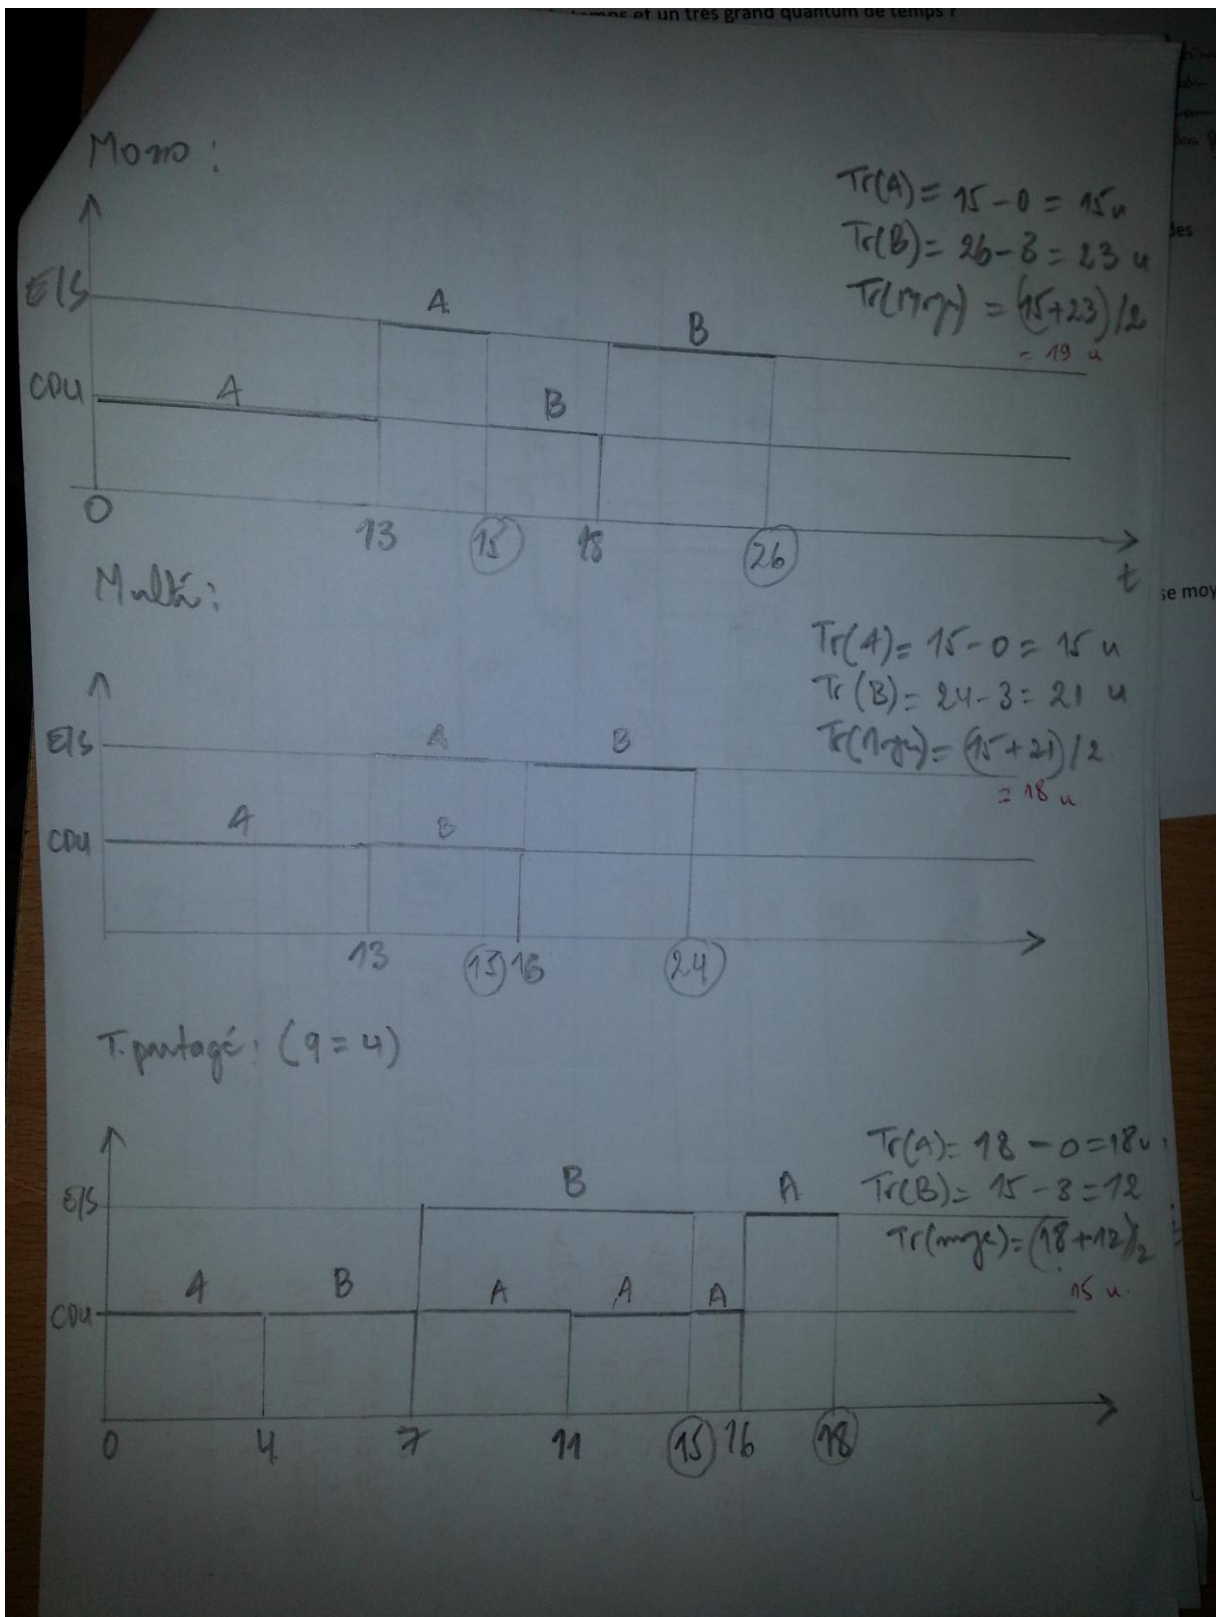 temps et un très grand quantum de temps ?
Mono :
Tr(A) = 15 - 0 = 15 u
Tr(B) = 26 - 3 = 23 u
Tr(moy) = (15+23)/2
= 19 u
E/S
A
B
CPU
A
B
0
13
15
18
26
t
des
se moy
Multi :
Tr(A) = 15 - 0 = 15 u
Tr(B) = 24 - 3 = 21 u
Tr(moy) = (15+21)/2
= 18 u
E/S
A
B
CPU
A
B
13
15
16
24
T. partagé : (q = 4)
Tr(A) = 18 - 0 = 18 u
Tr(B) = 15 - 3 = 12
Tr(moy) = (18+12)/2
15 u
E/S
B
A
CPU
A
B
A
A
A
0
4
7
11
15
16
18